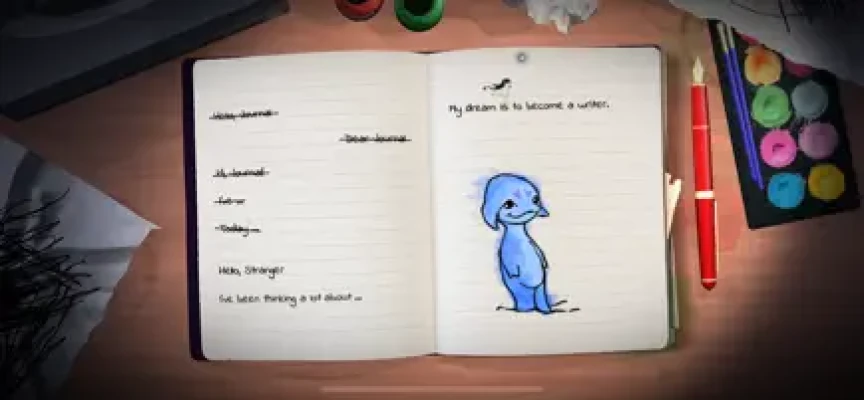 Hello, Journal
Dear Journal
Hi, Journal
Today...
Hello, Stranger
I've been thinking a lot about...
My dream is to become a writer.